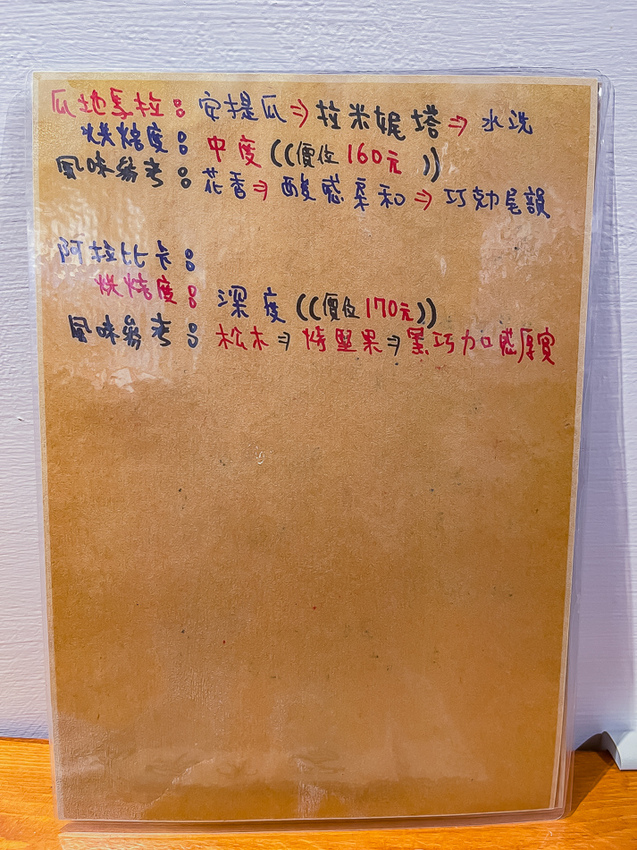 瓜地馬拉：安提瓜⇒拉米妮塔⇒水洗
烘焙度：中度((價位160元))
風味參考：花香⇒酸感柔和⇒巧克力尾韻
阿拉比卡：
烘焙度：深度((價位170元))
風味參考：松木⇒烤堅果⇒黑巧加感厚實